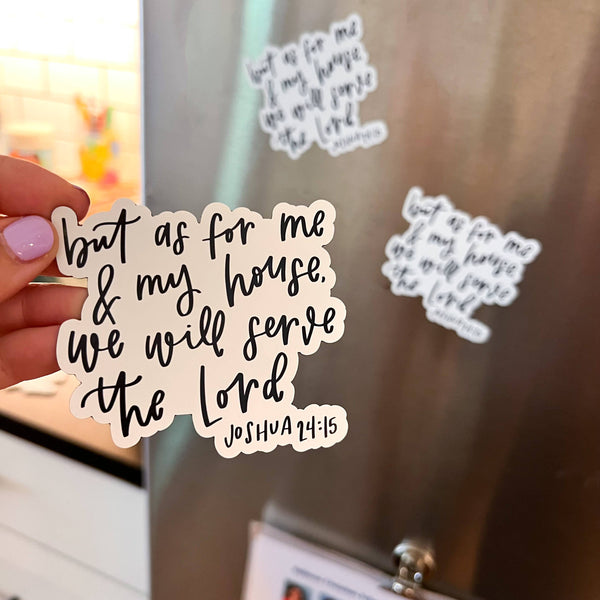 but as for me
& my house,
we will serve
the Lord
JOSHUA 24:15
but as for me
& my house
we will serve
the Lord
but as for me
& my house,
we will serve
the Lord